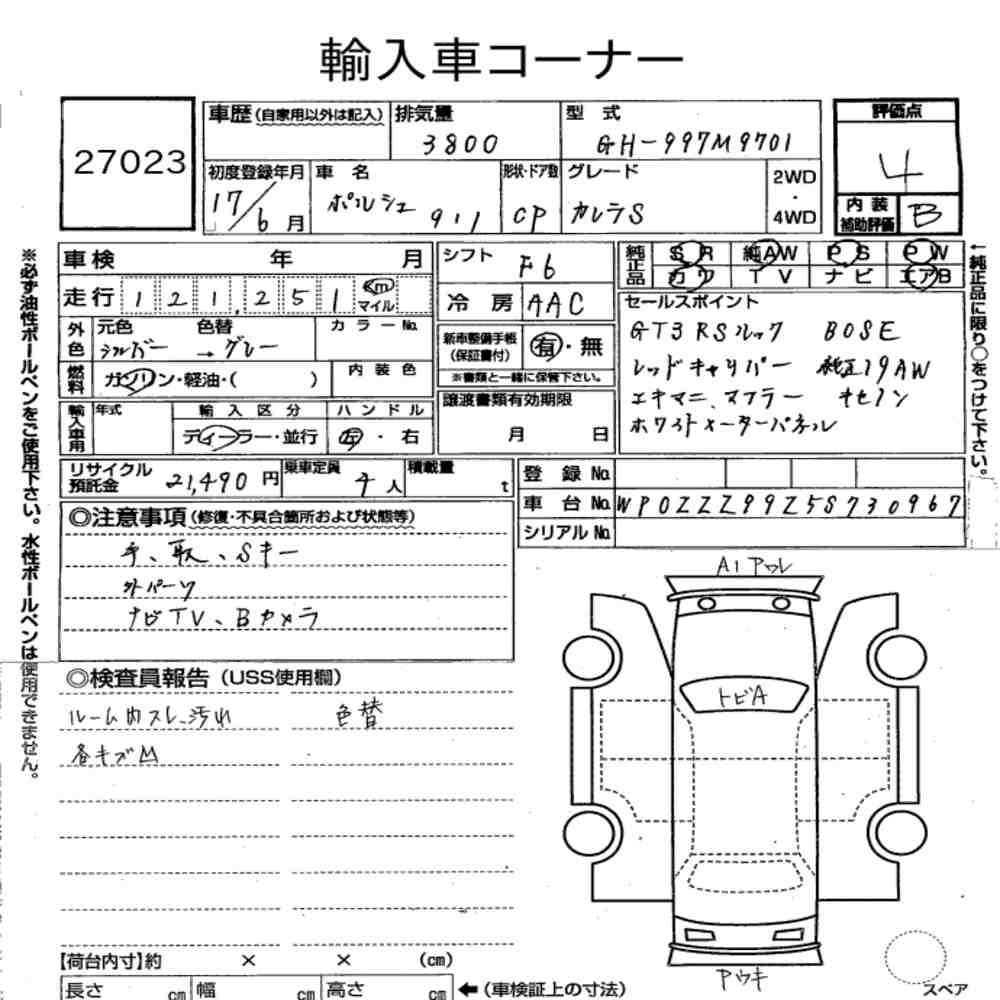 輸入車コーナー
27023
車歴 (自家用以外は記入) 排気量 型式 評価点
3800 GH-997M9701 4
初度登録年月 車名 形状・ドア数 グレード 2WD・4WD 内装補助評価 B
17/6月 ポルシェ 911 CP カレラS
車検 年 月
走行 121,251 km マイル
シフト F6
冷房 AAC
純正品 SR 純AW PS PW
カワ TV ナビ エアB
外色 元色 色替 カラーNo.
シルバー → グレー
燃料 ガソリン・軽油・( ) 内装色
新車整備手帳 (保証書付) 有・無
※書類と一緒に保管下さい。
セールスポイント
GT3RSルック BOSE
レッドキャリパー 純正19AW
エキマニ、マフラー キセノン
ホワイトメーターパネル
輸入車用 年式 輸入区分 ハンドル
ディーラー・並行 左・右
譲渡書類有効期限
月 日
リサイクル預託金 21,490円 乗車定員 4人 積載量 t
登録No.
車台No. WP0ZZZ99Z5S730967
シリアルNo.
◎注意事項 (修復・不具合箇所および状態等)
手、取、Sキー
外パーツ
ナビTV、Bカメラ
◎検査員報告 (USS使用欄)
ルーム内スレ、汚れ 色替
各キズ凹
A1 アワレ
トビA
アウキ
スペア
【荷台内寸】約 × × (cm)
長さ cm 幅 cm 高さ cm ←(車検証上の寸法)
※必ず油性ボールペンをご使用下さい。水性ボールペンは使用できません。
←純正品に限り○をつけて下さい。